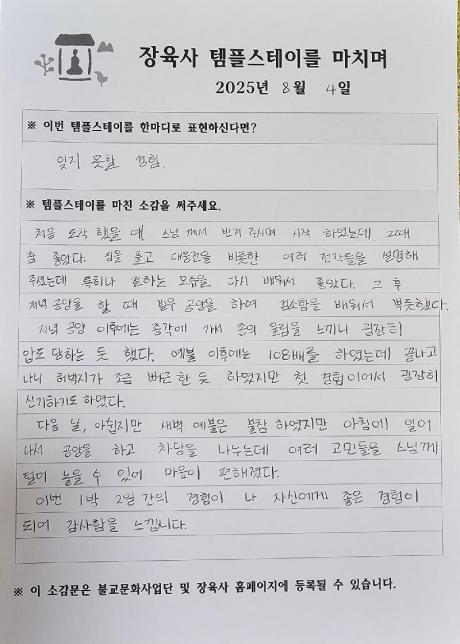 장육사 템플스테이를 마치며
2025년 8월 4일
※ 이번 템플스테이를 한마디로 표현하신다면?
잊지 못할 경험.
※ 템플스테이를 마친 소감을 써주세요.
처음 도착 했을 때 스님께서 반겨 주시며 시작 하였는데, 그때
참 좋았다. 짐을 풀고 대웅전을 비롯한 여러 전각들을 설명해
주셨는데 특히나 절하는 모습을 다시 배워서 좋았다. 그 후
저녁 공양을 할 때 발우 공양을 하여 검소함을 배워서 뿌듯했다.
저녁 공양 이후에는 종각에 가서 종의 울림을 느끼니 굉장히
압도 당하는 듯 했다. 예불 이후에는 108배를 하였는데 끝나고
나니 허벅지가 조금 뻐근한 듯 하였지만 첫 경험이어서 굉장히
신기하기도 하였다.
다음 날, 아쉽지만 새벽 예불은 불참 하였지만 아침에 일어
나서 공양을 하고 차담을 나누는데 여러 고민들을 스님께
털어 놓을 수 있어 마음이 편해졌다.
이번 1박 2일 간의 경험이 나 자신에게 좋은 경험이
되어 감사함을 느낍니다.
※ 이 소감문은 불교문화사업단 및 장육사 홈페이지에 등록될 수 있습니다.